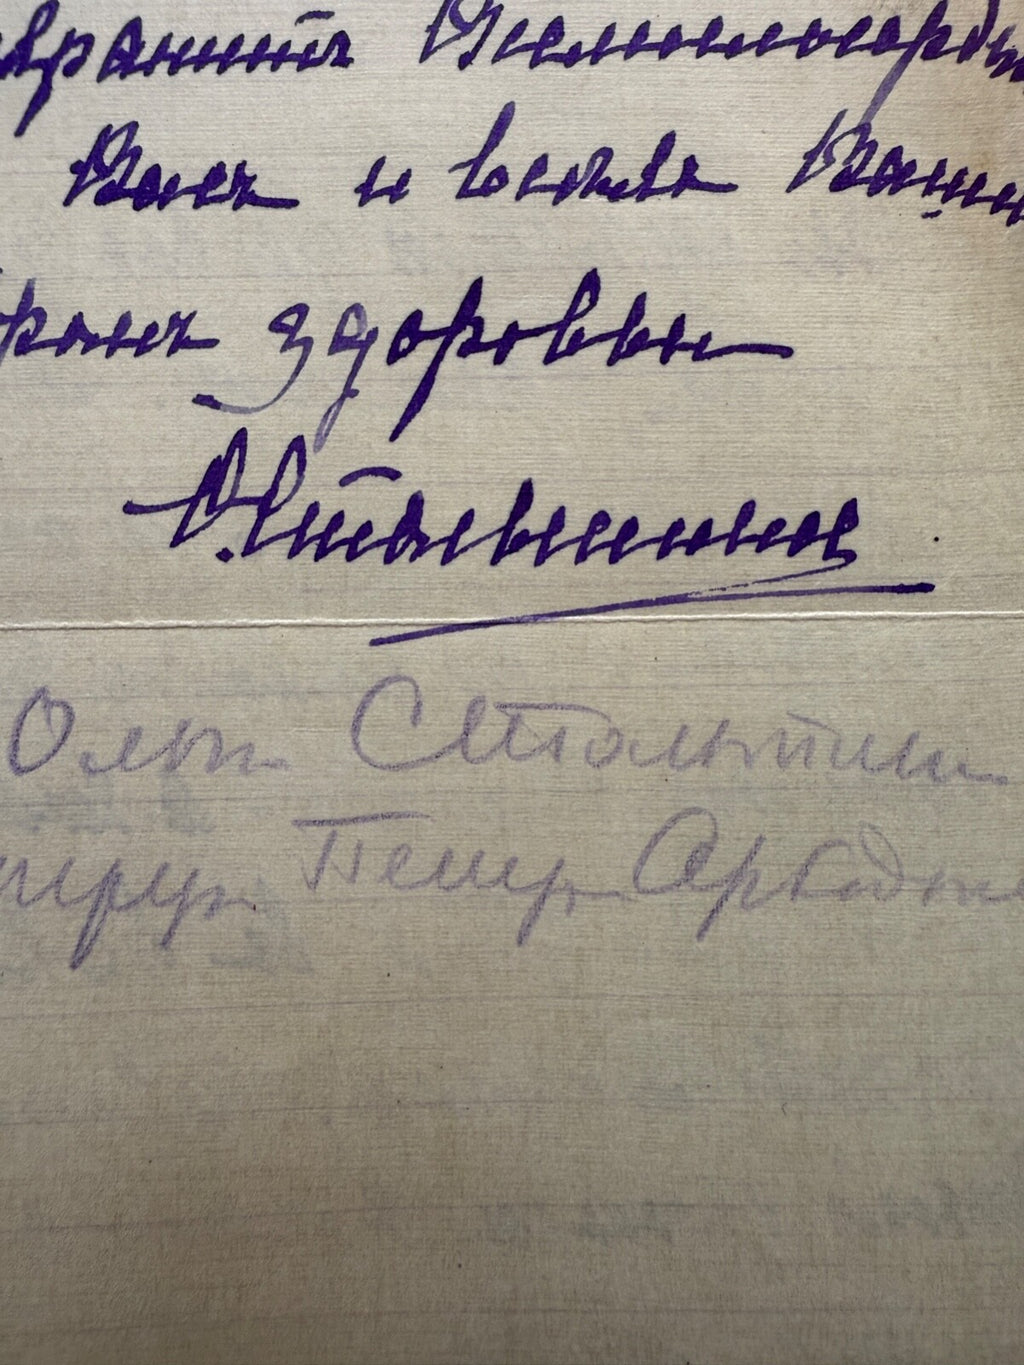 хранитъ Всемилосерд
Васъ и всѣхъ Ваши
добромъ здоровьи
О. Столыпина
Ольги Столыпин
Петру Аркадье